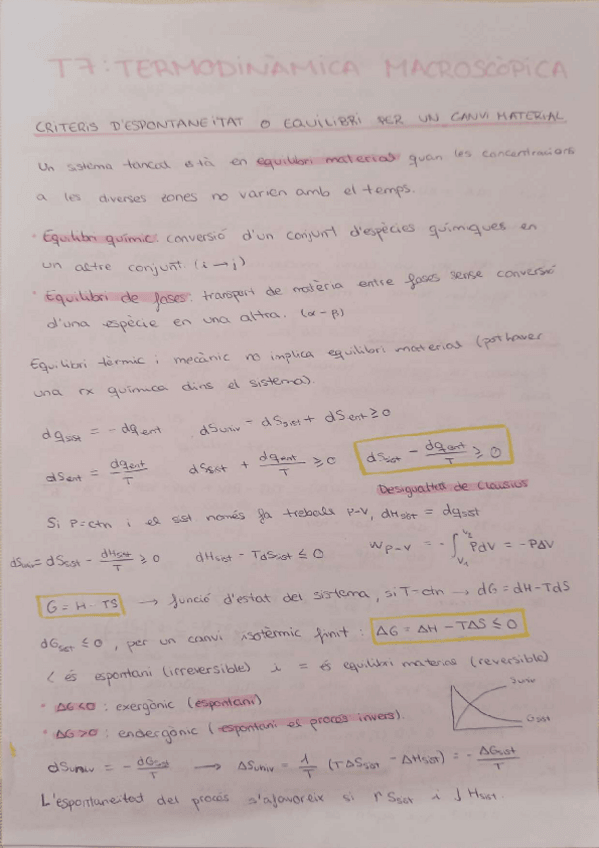 T7: TERMODINÀMICA MACROSCÒPICA
CRITERIS D'ESPONTANEÏTAT O EQUILIBRI PER UN CANVI MATERIAL
Un sistema tancat està en equilibri material quan les concentracions
a les diverses zones no varien amb el temps.
· Equilibri químic: conversió d'un conjunt d'espècies químiques en
un altre conjunt. (i → j)
· Equilibri de fases: transport de matèria entre fases sense conversió
d'una espècie en una altra. (α - β)
Equilibri tèrmic i mecànic no implica equilibri material (pot haver
una rx química dins el sistema).
dq_sist = - dq_ent dS_univ = dS_sist + dS_ent ≥ 0
dS_ent = dq_ent/T dS_sist + dq_ent/T ≥ 0 dS_sist - dq_ent/T ≥ 0
Desigualtat de Clausius
Si P=ctn i el sist només fa treball P-V, dH_sist = dq_sist
dS_univ = dS_sist - dH_sist/T ≥ 0 dH_sist - TdS_sist ≤ 0 W_P-V = -∫_V1^V2 PdV = -PΔV
G = H - TS → funció d'estat del sistema, si T=ctn → dG = dH - TdS
dG_sist ≤ 0, per un canvi isotèrmic finit: ΔG = ΔH - TΔS ≤ 0
< és espontani (irreversible) i = és equilibri material (reversible)
· ΔG<0: exergònic (espontani)
· ΔG>0: endergònic (espontani el procés invers).
S univ
G sist
dS_univ = - dG_sist/T → ΔS_univ = 1/T (TΔS_sist - ΔH_sist) = - ΔG_sist/T
L'espontaneïtat del procés s'afavoreix si ↑ S_sist i ↓ H_sist.